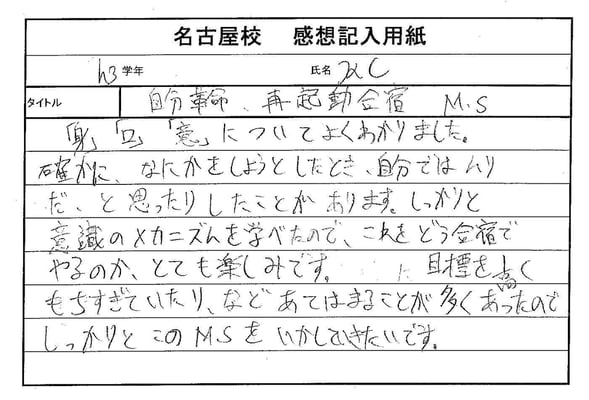 名古屋校 感想記入用紙
h3 学年 氏名 J.C
タイトル 自分革命、再起動合宿 M.S
「身」「口」「意」についてよくわかりました。
確かに、なにかをしようとしたとき、自分ではムリ
だ、と思ったりしたことがあります。しっかりと
意識のメカニズムを学べたので、これをどう合宿で
やるのか、とても楽しみです。 に目標を高く
もちすぎていたり、などあてはまることが多くあったので
しっかりとこのM.Sをいかしていきたいです。